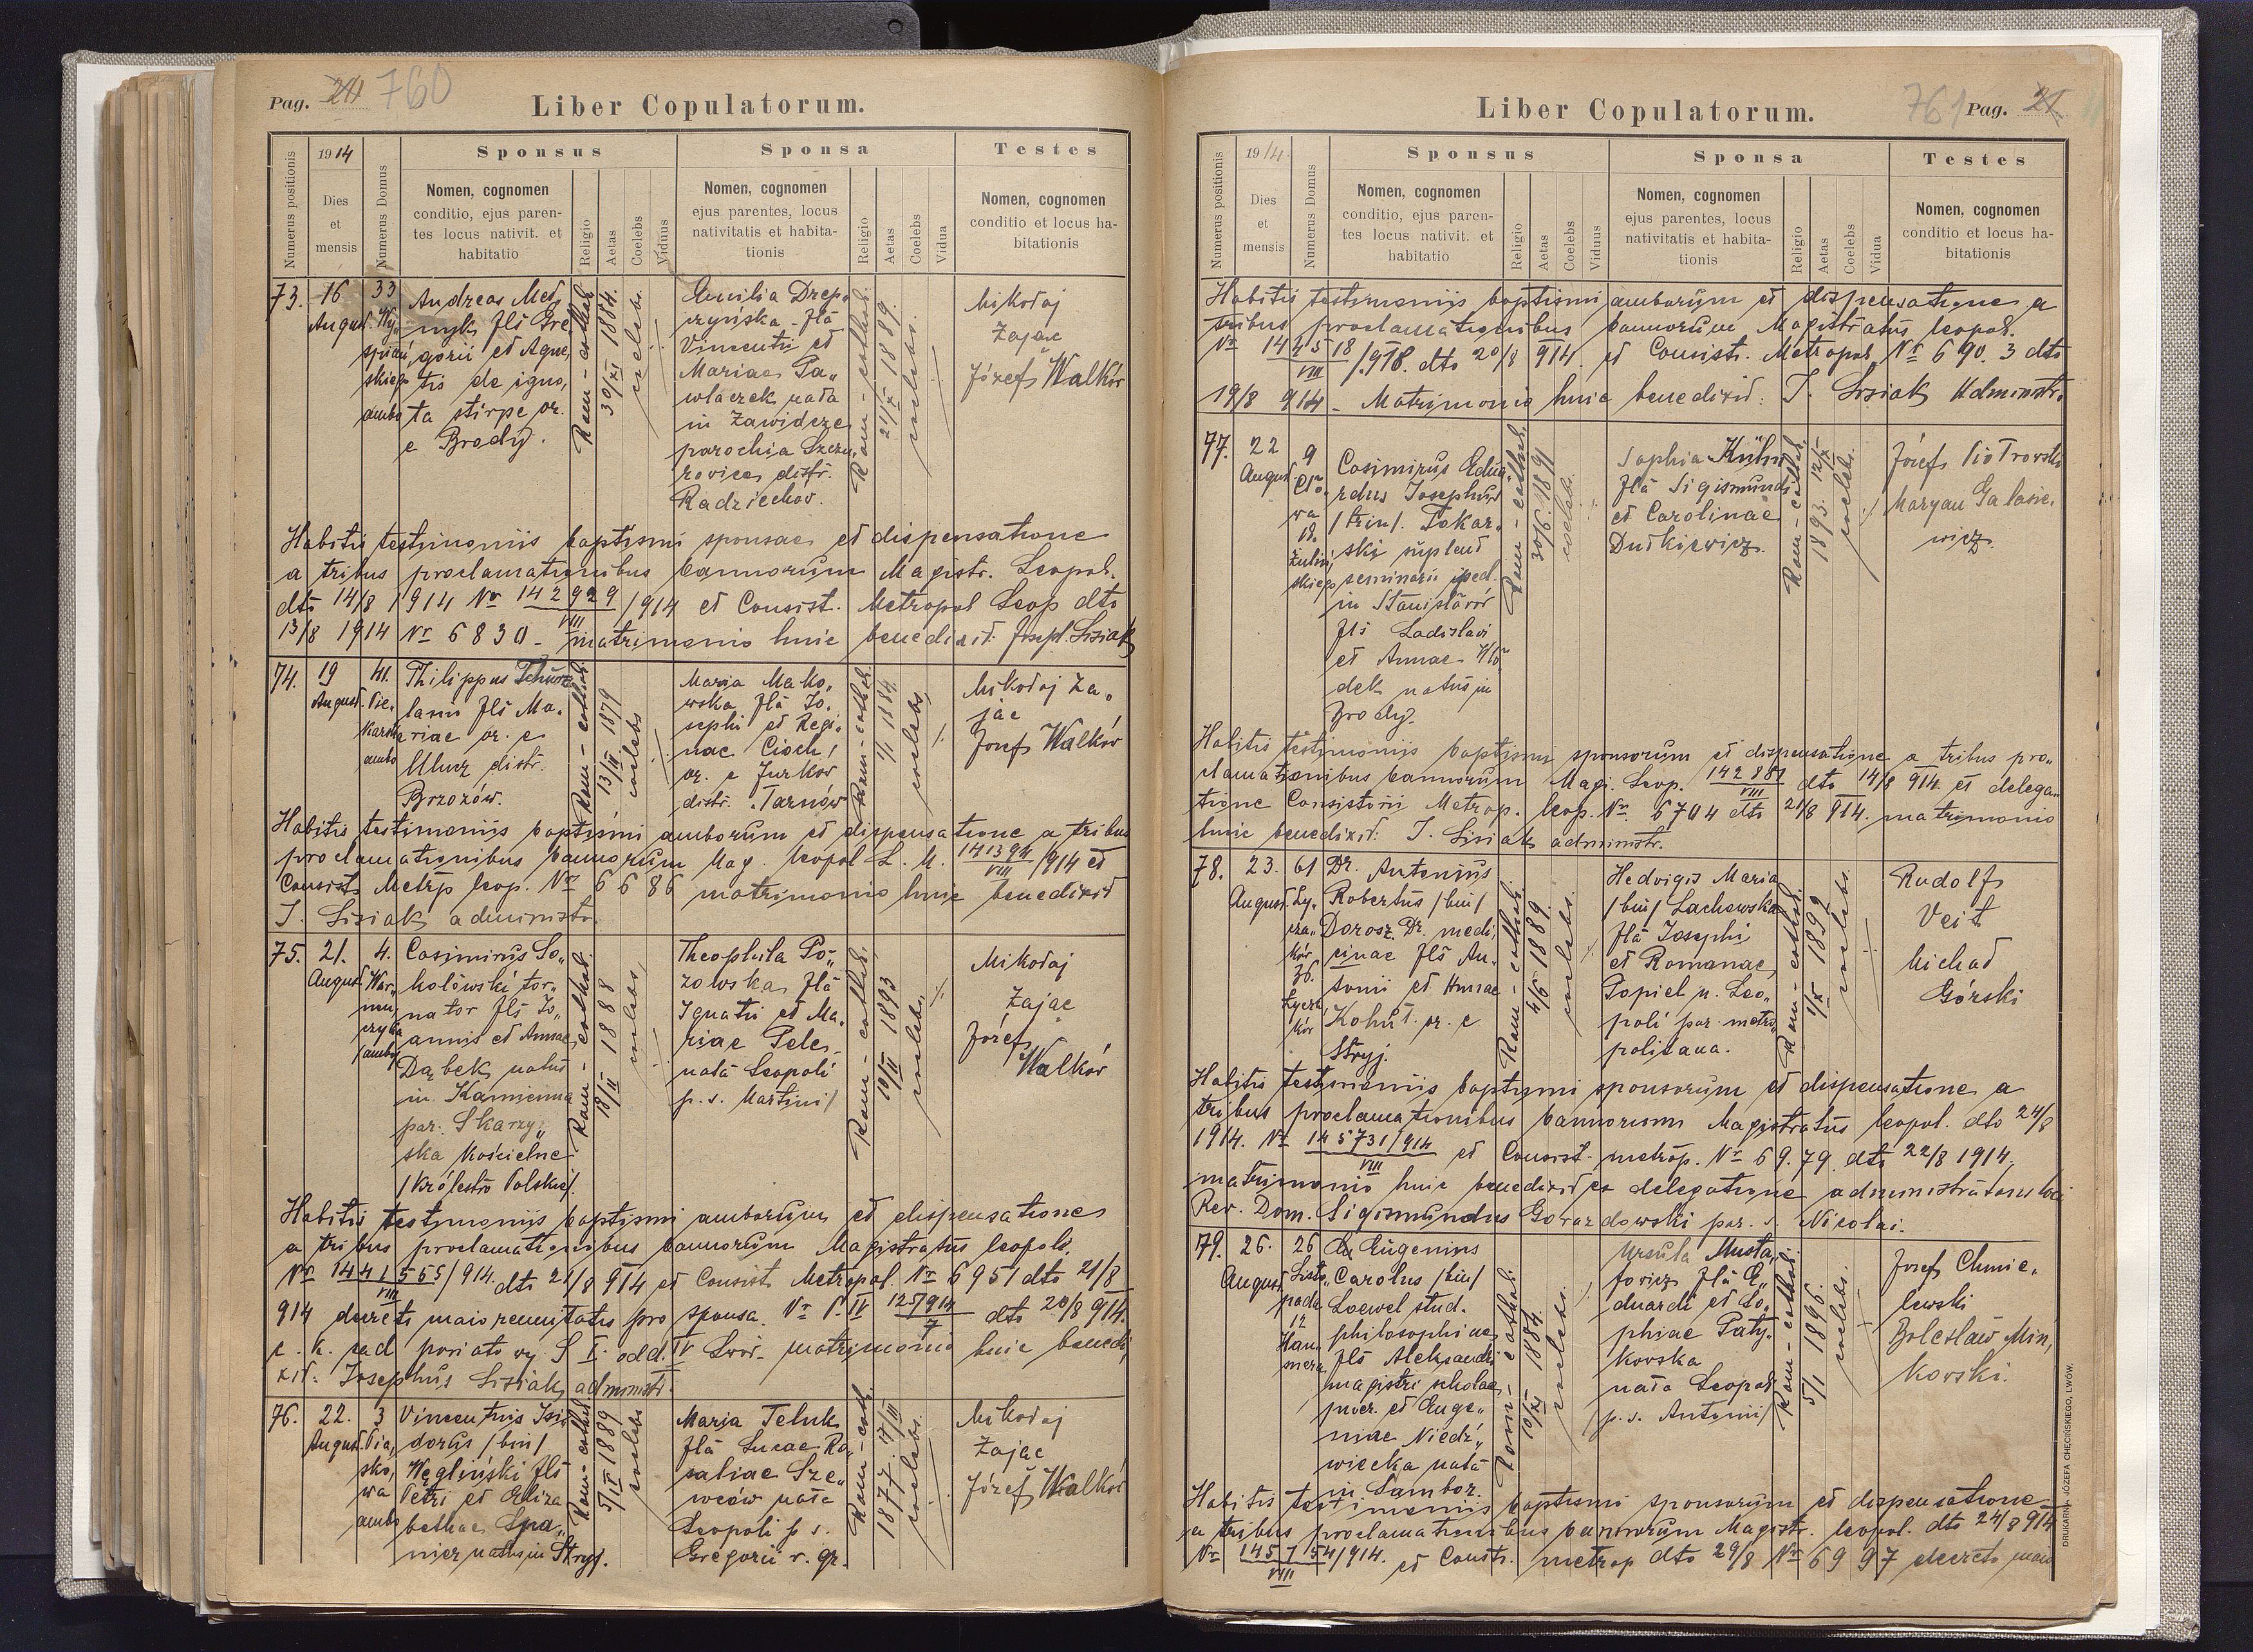 Pag. 24 760
Liber Copulatorum.
Numerus positionis
1914
Dies
et
mensis
Numerus Domus
Sponsus
Nomen, cognomen
conditio, ejus paren-
tes locus nativit. et
habitatio
Religio
Aetas
Coelebs
Viduus
Sponsa
Nomen, cognomen
ejus parentes, locus
nativitatis et habita-
tionis
Religio
Aetas
Coelebs
Vidua
Testes
Nomen, cognomen
conditio et locus ha-
bitationis
73.
16
August.
33
Wy„
spiań„
skiego
ambo
Andreas Mel„
nyk fls Gre„
gorii et Agne„
tis de igno„
ta stirpe or.
e Brody.
Rom-cathol.
30/XI 1884.
coelebs.
Emilia Drep„
czyńska fla
Vincentii et
Mariae Pa„
wlaczek nata
in Zawidcze
parochia Szczu„
rovice distr.
Radziechów.
Rom-cathol.
21/X 1889.
coelebs.
Mikołaj
Zając
Józef Walków
Habitis testimoniis baptismi sponsae et dispensatione
a tribus proclamationibus bannorum Magistr. Leopol.
dto 14/8 1914 Nr 142929/VIII /914 et Consist. Metropol Leop dto
13/8 1914 Nr 6830 - matrimonio huic benedixit Joseph. Lisiak
74.
19
August.
41.
Pie„
karska
ambo
Philippus
lasio fls Ma„
riae or. e
Ulucz distr.
Brzozów.
Rom-cathol.
13/III 1879
coelebs
Maria Mako„
wska fla Jo„
sephi et Regi„
nae Cioch
or. e Jurków
distr. Tarnów
Rom-cathol.
1/1 1884.
coelebs
Mikołaj Za„
jąc
Józef Walków
Habitis testimoniis baptismi amborum et dispensatione a tribus
proclamationibus bannorum Mag. Leopol L. M. 141394/VIII /914 et
Consist Metrp Leop. Nr 6686 matrimonio huic benedixit
J. Lisiak administr.
75.
21.
August
4.
War„
neń„
czyka
/ambo/
Casimirus So„
kołowski tor„
nator fls Jo„
annis et Annae
Dąbek natus
in Kamienna
par. Skarży„
ska Kościelne
/Królestw Polskie/.
Rom-cathol.
18/II 1888
coelebs
Theophila Po„
zowska fla
Ignatii et Ma„
riae Peles
nata Leopoli
p. s. Martini/
Rom-cathol.
10/II 1893
coelebs
Mikołaj
Zając
Józef
Walków
Habitis testimoniis baptismi amborum et dispensatione
a tribus proclamationibus bannorum Magistratus Leopol.
Nr 1441555/VIII /914. dto 21/8 914 et Consist Metropol. Nr 6951 dto 21/8
914 decreti maiorennitatis pro sponsa. Nr P. IV 125/914/7 dto 20/8 914.
c. k. sad powiatowy S I. odd. IV Lwów - matrimonio huic benedi„
xit. Josephus Lisiak administr.
76.
22.
August.
3
Pia„
sko„
wa
ambo
Vincentius Isi„
dorus /bin/
Węgliński fls
Petri et Eliza„
bethae Spa„
nier natus in Stryj.
Rom-cathol.
5/IV 1889
coelebs
Maria Teluk
fla Lucae Ro„
saliae Sze„
wców nata
Leopoli p s.
Gregorii r. gr.
Rom-cath.
1877. 17/III
coelebs.
Mikołaj
Zając
Józef Walków
Liber Copulatorum.
761 Pag. 25
Numerus positionis
1914.
Dies
et
mensis
Numerus Domus
Sponsus
Nomen, cognomen
conditio, ejus paren-
tes locus nativit. et
habitatio
Religio
Aetas
Coelebs
Viduus
Sponsa
Nomen, cognomen
ejus parentes, locus
nativitatis et habita-
tionis
Religio
Aetas
Coelebs
Vidua
Testes
Nomen, cognomen
conditio et locus ha-
bitationis
Habitis testimoniis baptismi amborum et dispensatione a
tribus proclamationibus bannorum Magistratus Leopol.
Nr 144518/VIII /.918. dto 20/8 914. et Consist. Metropol Nr 690.3 dto
19/8 914 - Matrimonio huic benedixit. J. Lisiak Administr.
77.
22
August
9
18.
Żuliń„
skiego
Casimirus Edua„
rdus Josephus
/trin/. Tokar„
ski suplent
seminarii ped.
in Stanisławów
fls Ladislai
et Annae Wło„
dek natus in
Brody.
Rom-cathol.
30/6. 1891
coelebs.
Sophia Kühn
fla Sigismundi
et Carolinae
Dutkiewicz.
Rom-cathol.
1893. 12/IX
coelebs.
Józef Piotrowski
Maryan Galasie„
wicz.
Habitis testimoniis baptismi sponsorum et dispensatione a tribus pro„
clamationibus bannorum Magi. Leop. 142881/VIII dto 14/8 914. et delega„
tione Consistorii Metrop. Leop. Nr. 6704 dto 21/8 914. matrimonio
huic benedixit: J. Lisiak administr.
78.
23.
August.
61
Ły„
cza„
ków
36.
Łycza
ków
Dr. Antonius
Robertus /bin/
Dorosz Dr. medi„
cinae fls An„
tonii et Annae
Kohut. or. e
Stryj.
Rom-cathol.
4/6 1889.
coelebs
Hedvigis Maria
/bin/ Lachowska
fla Josephi
et Romanae
Popiel n. Leo„
poli par. metro„
politana.
Rom-cathol.
1/X 1899
coelebs.
Rudolf
Veit
Michał
Górski
Habitis testimoniis baptismi sponsorum et dispensatione a
tribus proclamationibus bannorum Magistratus Leopol. dto 24/8
1914. Nr 145731/914/VIII et Consist. metrop. Nr 69.79. dto 22/8 1914.
matrimonio huic benedixit ex delegatione administratoris loci
Rev. Dom. Sigismundus Gorazdowski par. s. Nicolai.
79.
26.
August
26
Listo„
pada
12
Ham„
mera
Eugenius
Carolus /bin/
Loewel stud.
philosophiae
fls Aleksandri
magistri scholae
puer. et Euge„
niae Niedź„
wiecka natus
in Sambor.
Rom-cathol.
10/XI 1884.
coelebs.
Ursula Musta„
fowicz fla E„
duardi et So„
phiae Paty„
kowska
nata Leopol.
/p. s. Antonii/
Rom-cathol.
5/1 1896.
coelebs.
Josef Chmie„
lewski
Bolesław Min„
kowski.
Habitis testimoniis baptismi sponsorum et dispensatione
a tribus proclamationibus bannorum Magistr. Leopol. dto 24/8 914
Nr 145754/VIII /914. et Constr. metrop dto 29/8 Nr 6997 decreto maio
DRUKARNIA JÓZEFA CHĘCIŃSKIEGO, LWÓW.